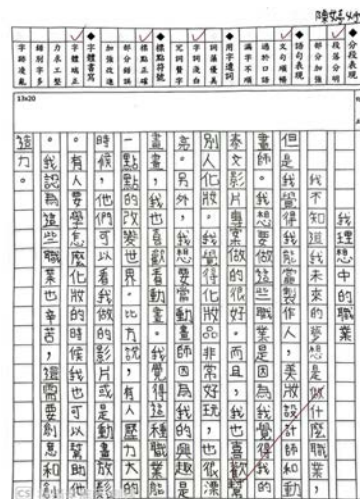 ◆分段表現
段落分明
部分加強
◆語句表現
文句順暢
過於口語
漏字不順
◆用字遣詞
詞藻優美
字詞淺白
冗詞贅字
◆標點符號
標點正確
部分錯誤
加強改進
◆字體書寫
字體端正
力求工整
錯別字多
字跡凌亂
13x20
我理想中的職業
我不知道我未來的夢想是做什麼職業，
但是我覺得我能當製作人，美妝設計師和動
畫師。我想要做的這些職業是因為我覺得我的
泰文影片專案做的很好。而且，我也喜歡幫
別人化妝。我覺得化妝品非常好玩，也很漂
亮。另外，我想要當動畫師因為我的興趣是
畫畫，我也喜歡看動畫。我覺得這種職業能
一點點的改變世界。比方說，有人壓力大的
時候，他們可以看我做的影片或是動畫放鬆
。有人要學怎麼化妝的時候我也可以幫助他
。我認為這些職業也辛苦，還需要創思和創
造力。